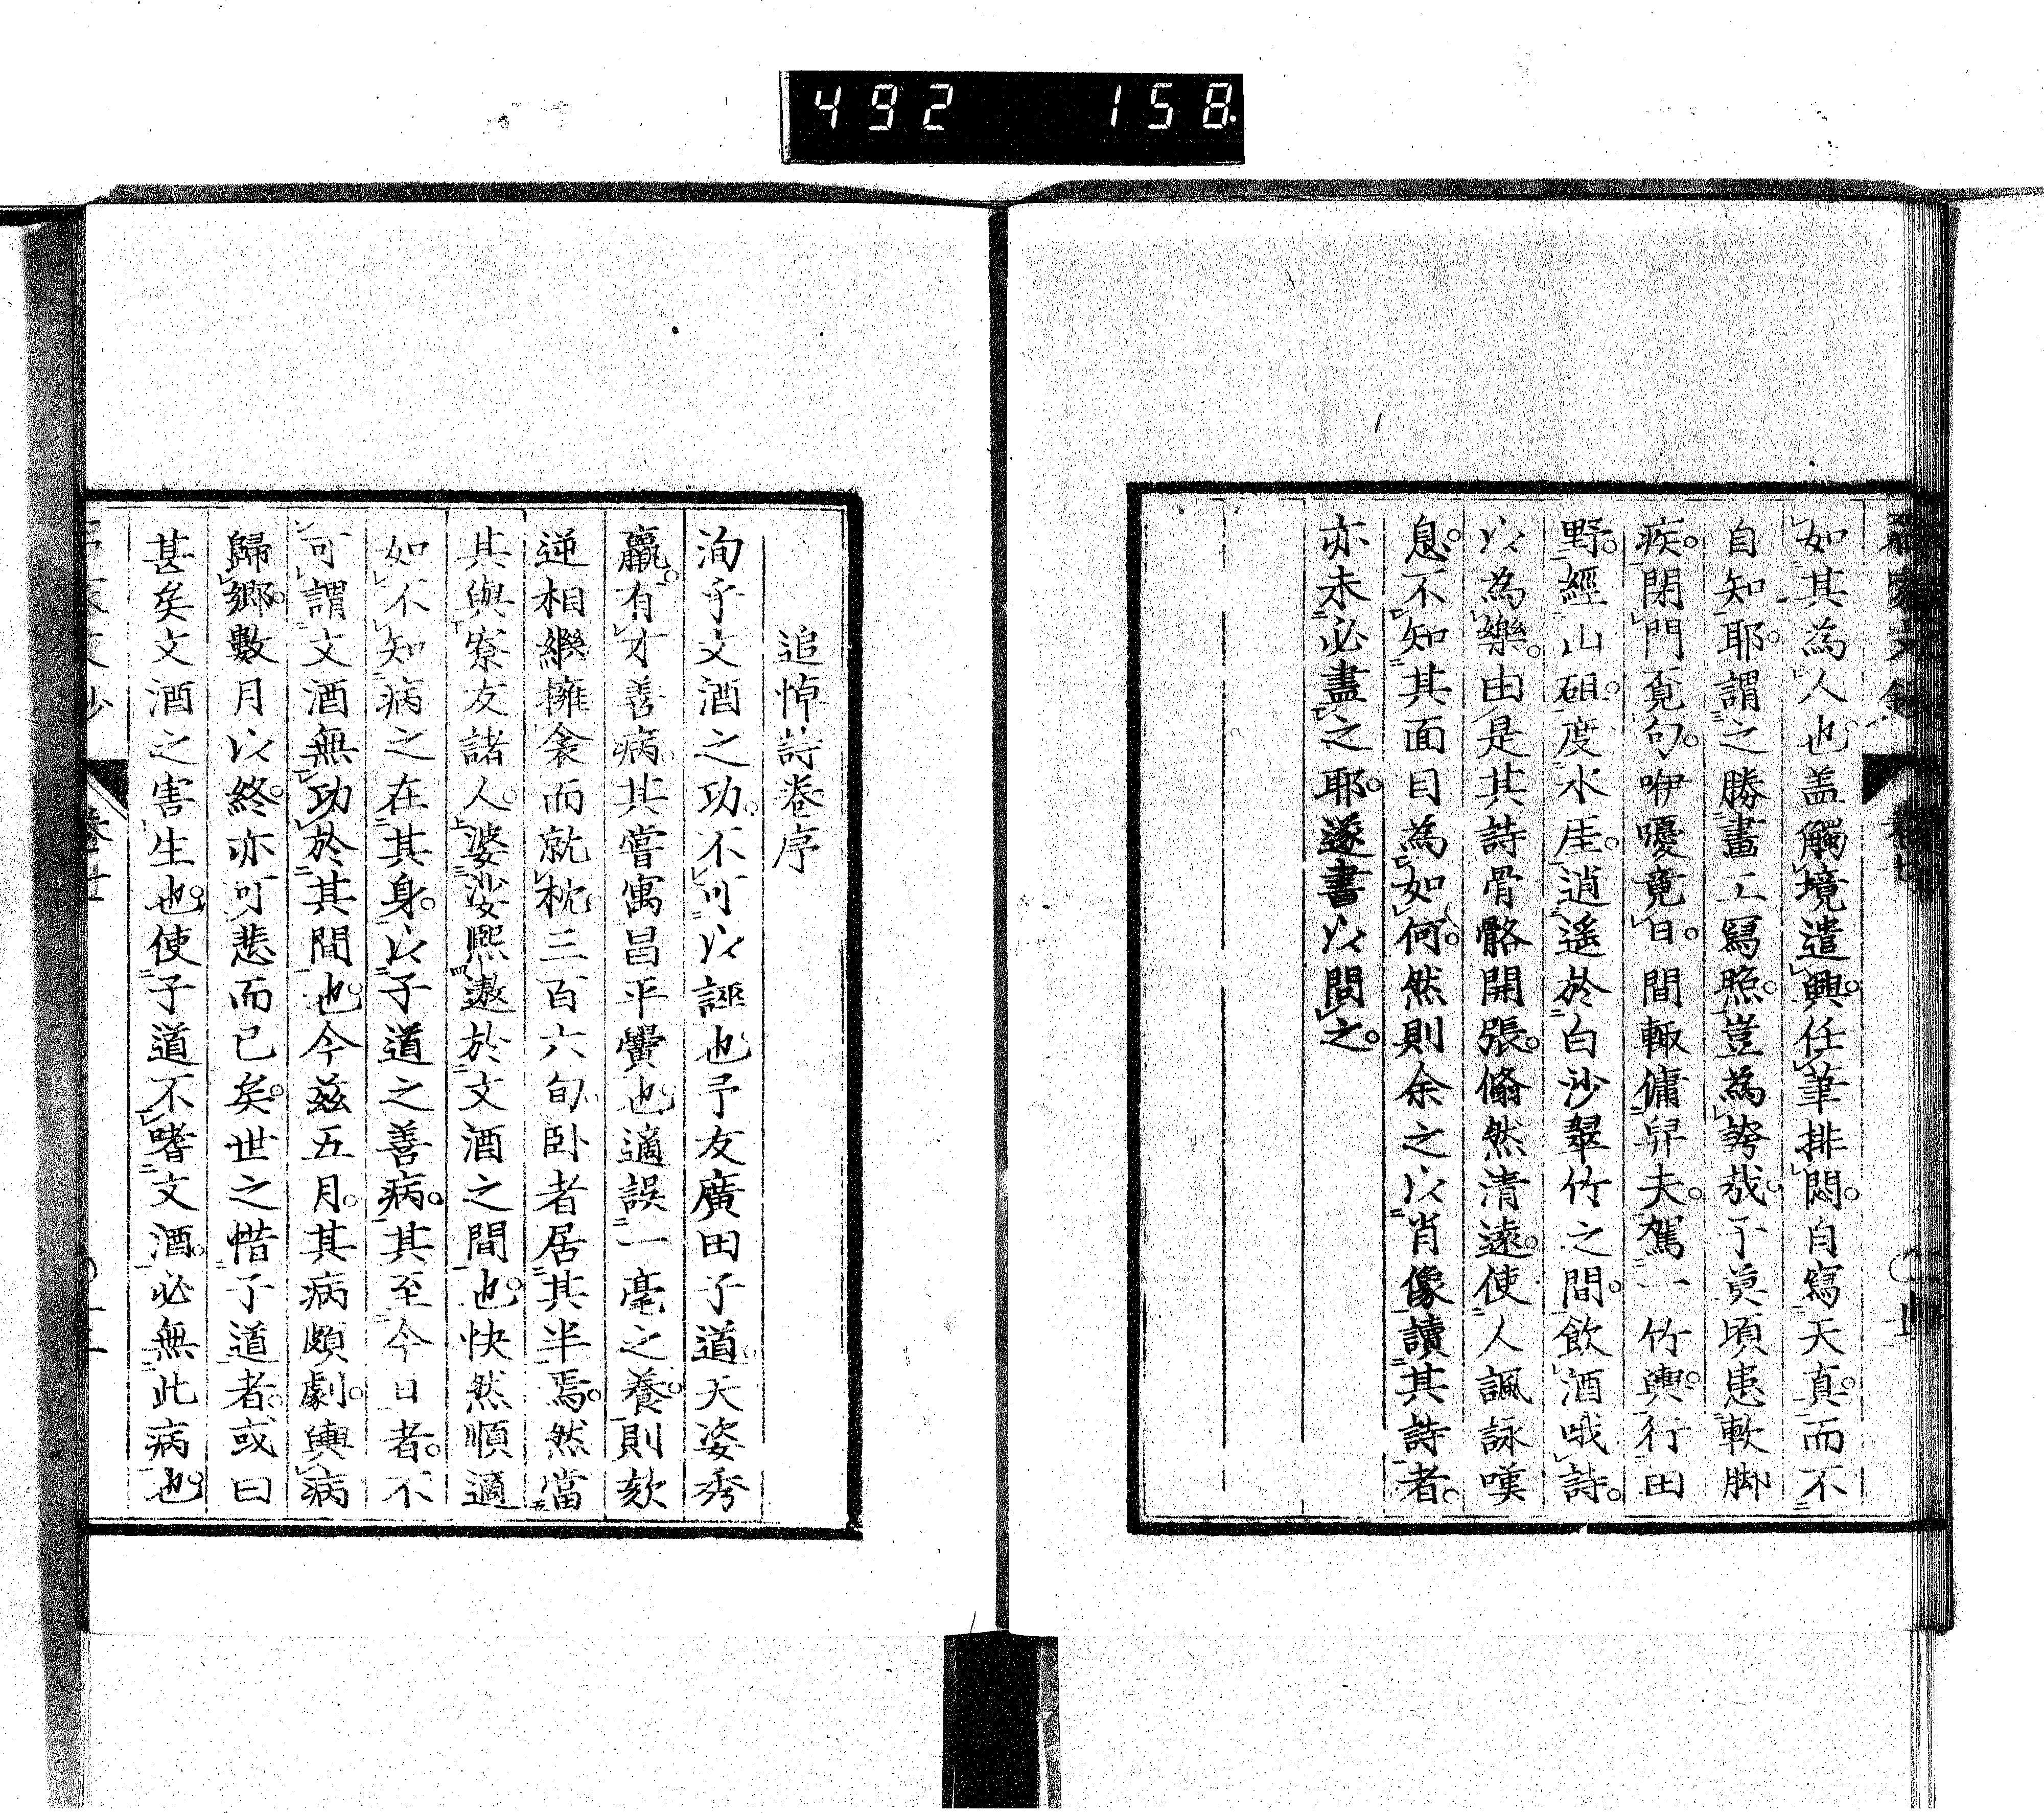 492 158
如其為人也盖觸境遣興。任筆排悶。自寫天真。而不
自知耶。謂之勝畫工寫照。豈為誇哉。予莫頃患軟脚
疾。閉門覓句。咿嚘竟日。間輙傭舁夫。駕一竹輿。行田
野。經山砠。度水厓。逍遥於白沙翠竹之間。飲酒哦詩。
以為樂。由是其詩骨骼開張。翛然清遠。使人諷詠嘆
息。不知其面目為如何。然則余之以肖像讀其詩者。
亦未必盡之耶。遂書以問之。
追悼詩卷序
洵乎文酒之功。不可以誣也予友廣田子道。天姿秀
羸。有才善病。其嘗寓昌平黌也。適誤一毫之養。則欬
逆相繼擁衾而就枕。三百六旬。卧者居其半焉。然當
其與寮友諸人。婆娑熙遨於文酒之間也。快然順適
如不知病之在其身。以子道之善病。其至今日者。不
可謂文酒無功於其間也。今兹五月。其病頗劇。輿病
歸鄉。數月以終。亦可悲而已矣。世之惜子道者。或曰
甚矣文酒之害生也。使子道不嗜文酒。必無此病也